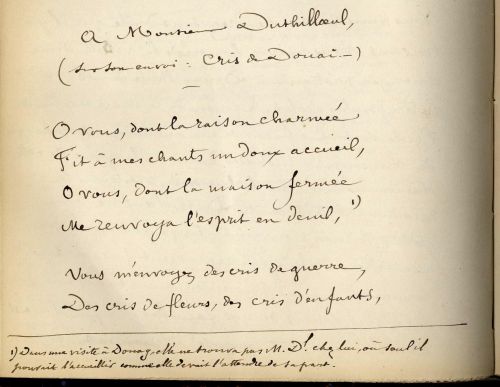 A Monsieur Duthillœul,
(sur son envoi : Cris de Douai –)
O vous, dont la raison charmée
Fit à mes chants un doux accueil,
O vous, dont la maison fermée
Me renvoya l'esprit en deuil, 1)
Vous m'envoyez des cris de guerre,
Des cris de fleurs, des cris d'enfants,
1) Dans une visite à Douay, elle ne trouva pas M. Dl. chez lui, où seul il
pouvait l'accueillir comme elle devait l'attendre de sa part.